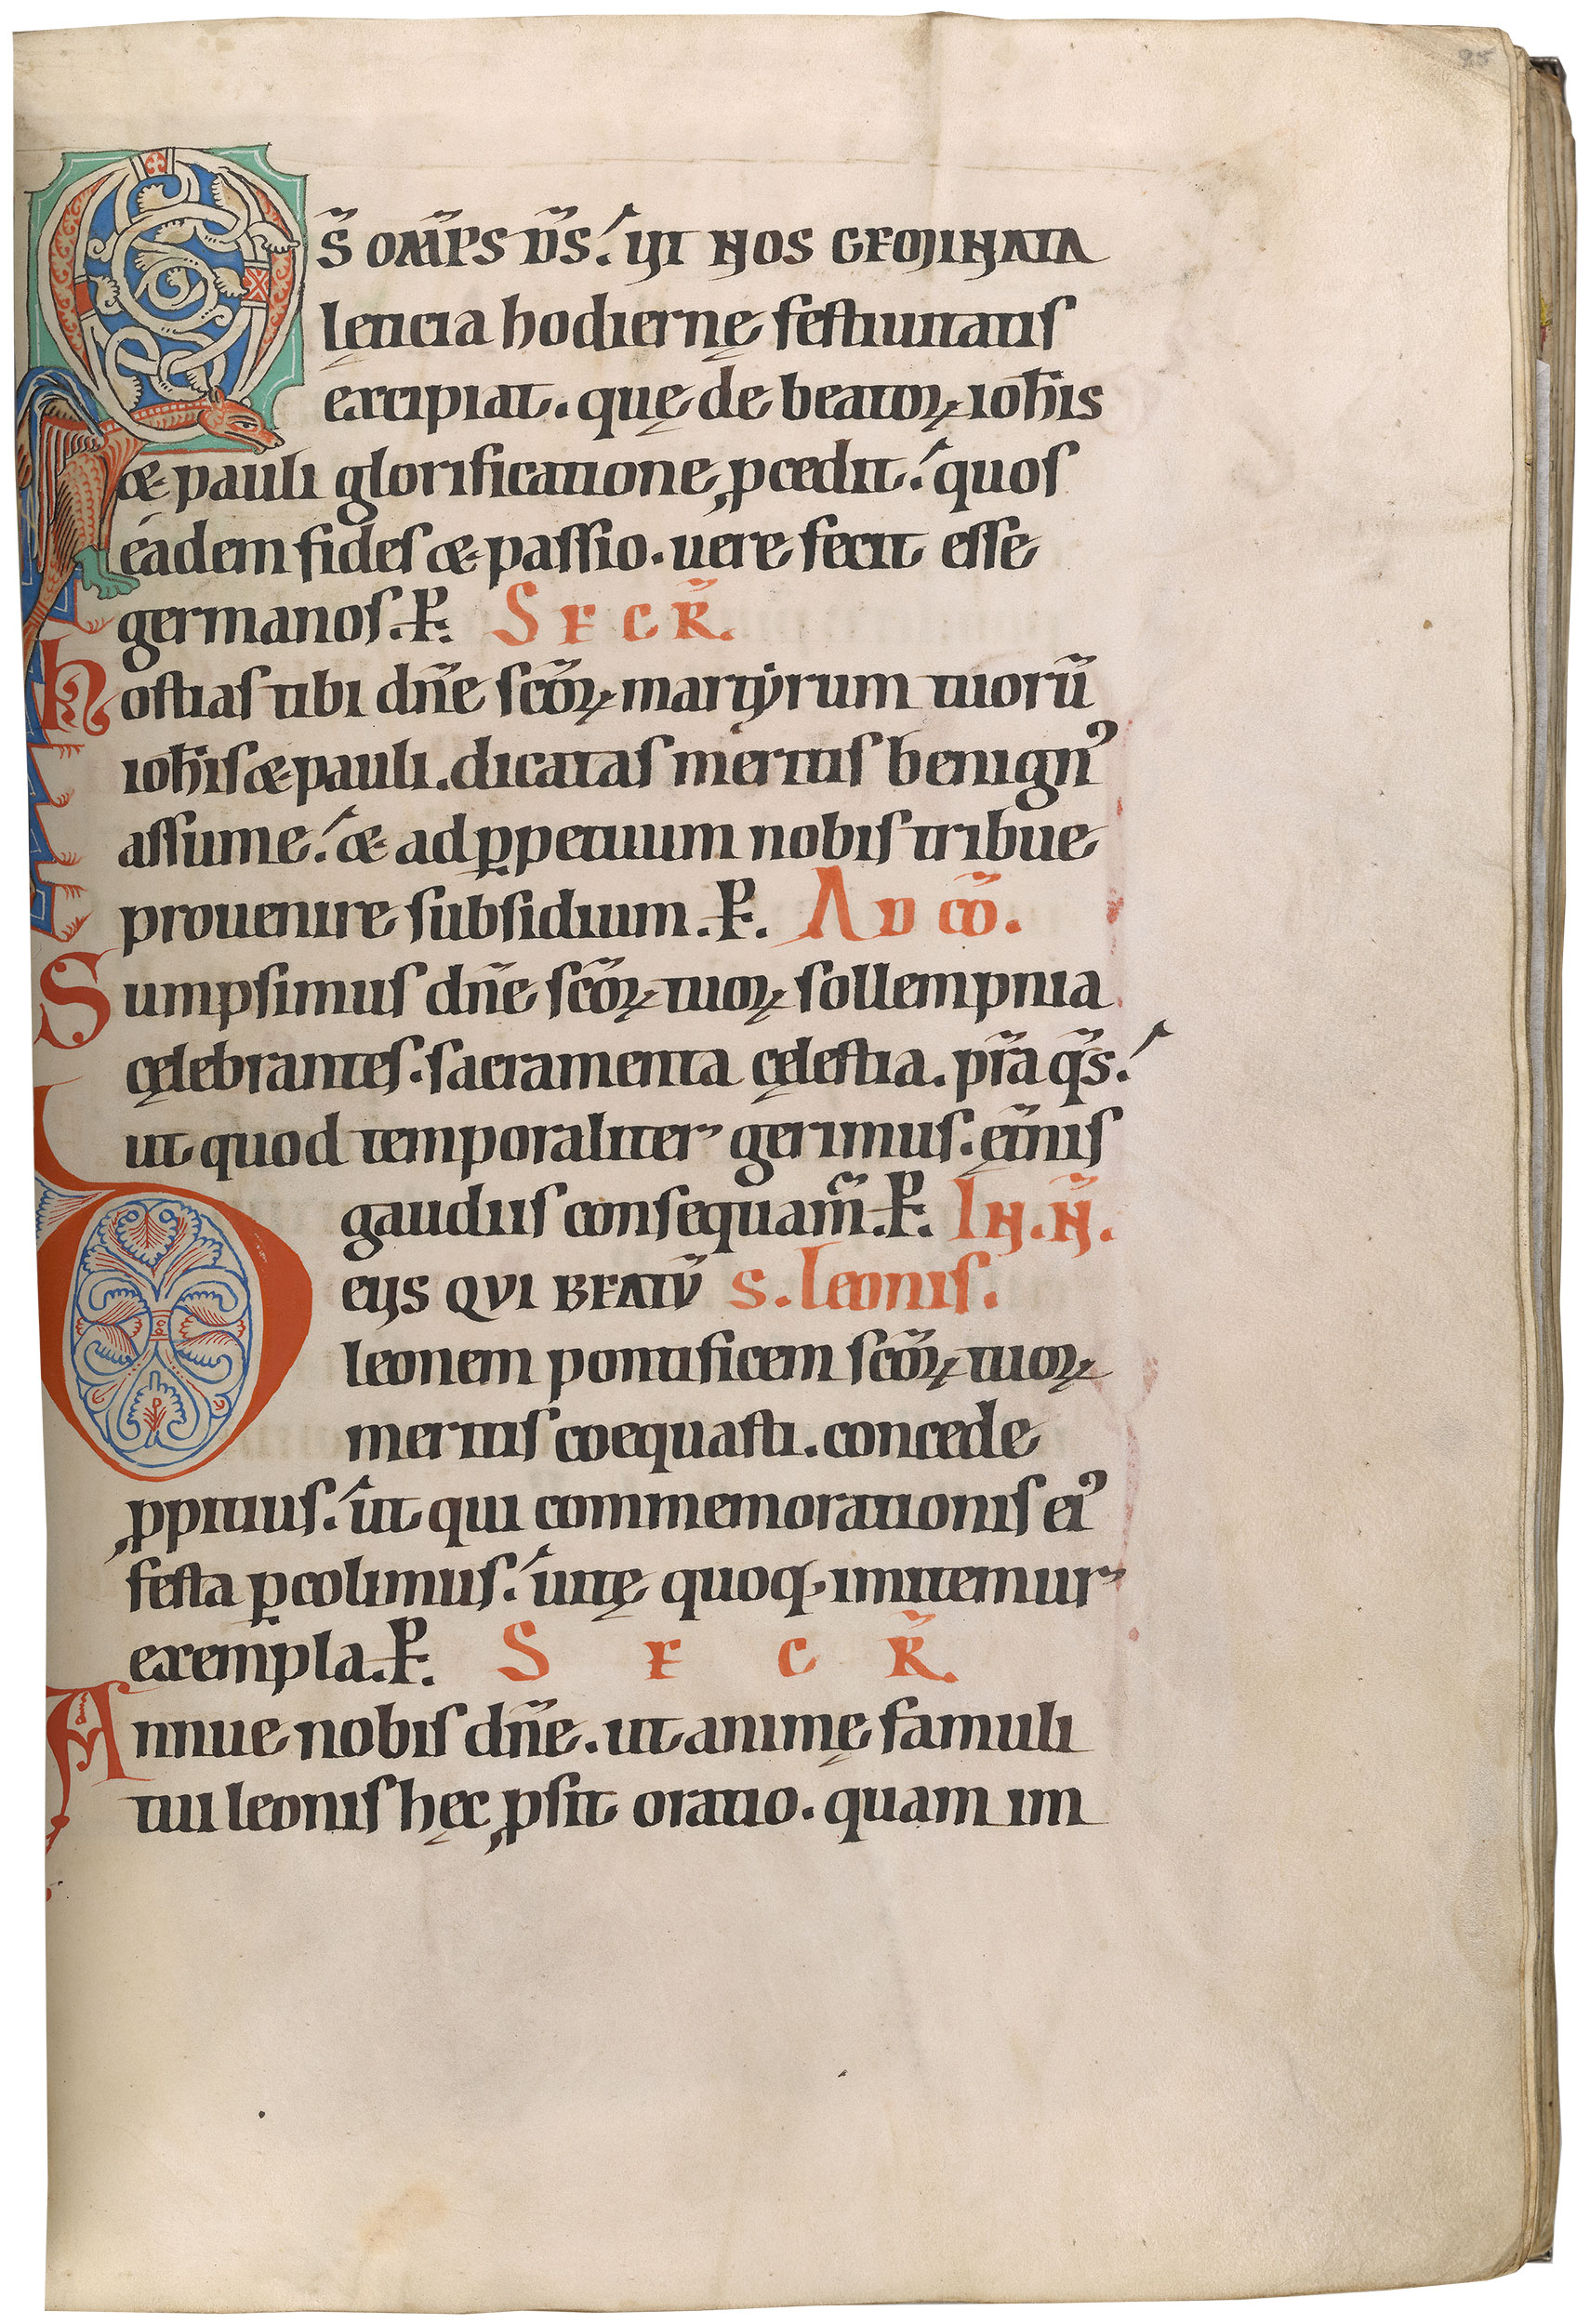 95
Qs̄ om̄ps ds̄. ut nos geminata
lęticia hodiernę festiuitatis
excipiat. quę de beatoꝝ ioh̄is
& pauli glorificatione ꝓcedit. quos
eadem fides & passio. uere fecit esse
germanos. P. SECR̄.
hostias tibi dn̄e sc̄oꝝ martẏrum tuorū
ioh̄is & pauli. dicatas meritis benignꝰ
assume. & ad ꝑpetuum nobis tribue
prouenire subsidium. P. AD CŌ.
Sumpsimus dn̄e sc̄oꝝ tuoꝝ sollempnia
cęlebrantes. sacramenta cęlestia. pr̄a qs̄.
ut quod temporaliter gerimus. ęt̄nis
gaudiis consequam̄. P. IN. N̄.
Deus qui beatū S. leonis.
leonem pontificem sc̄oꝝ tuoꝝ
meritis coequasti. concede
ꝓpitius. ut qui commemorationis eiꝰ
festa ꝑcolimus. uitę quoq; imitemur
exempla. P. SECR̄.
Annue nobis dn̄e. ut animę famuli
tui leonis hęc ꝓsit oratio. quam im